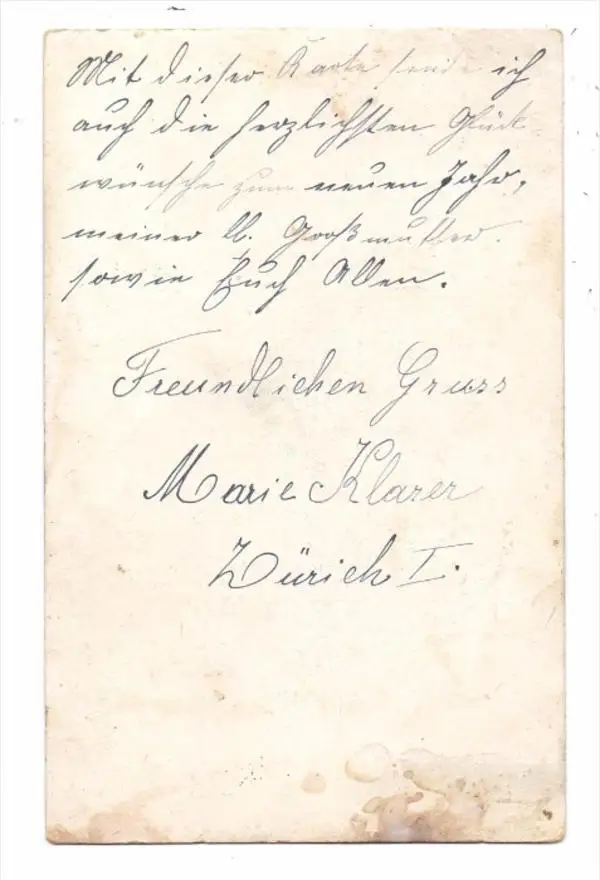 Mit dieser Karte sende ich
auch die herzlichsten Glück-
wünsche zum neuen Jahr,
meiner lb. Großmutter.
sowie Euch Allen.
Freundlichen Gruss
Marie Klarer
Zürich I.